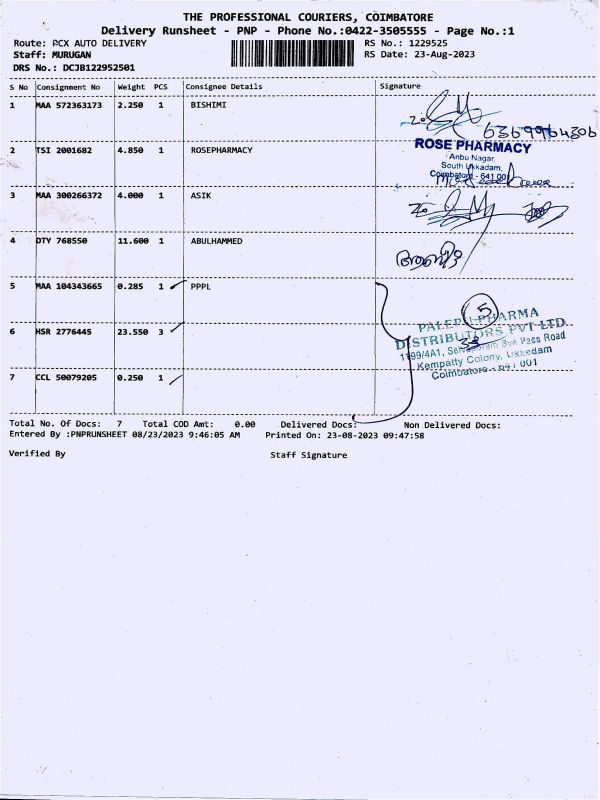 THE PROFESSIONAL COURIERS, COIMBATORE
Delivery Runsheet - PNP - Phone No.:0422-3505555 - Page No.:1
Route: PCX AUTO DELIVERY
RS No.: 1229525
Staff: MURUGAN
RS Date: 23-Aug-2023
DRS No.: DCJB122952501
S No Consignment No Weight PCS Consignee Details Signature
1 MAA 572363173 2.250 1 BISHIMI
6369964306
2 TSI 2001682 4.850 1 ROSEPHARMACY
ROSE PHARMACY
Anbu Nagar,
South Ukkadam,
Coimbatore - 641 001
3 MAA 300266372 4.000 1 ASIK
4 DTY 768550 11.600 1 ABULHAMMED
5 MAA 104343665 0.285 1 PPPL
5
6 HSR 2776445 23.550 3
PALEPU PHARMA
DISTRIBUTORS PVT LTD
1199/4A1, Bye Pass Road
Kempatty Colony, Ukkadam
Coimbatore - 641 001
7 CCL 50079205 0.250 1
Total No. Of Docs: 7 Total COD Amt: 0.00 Delivered Docs: Non Delivered Docs:
Entered By :PNPRUNSHEET 08/23/2023 9:46:05 AM Printed On: 23-08-2023 09:47:58
Verified By Staff Signature